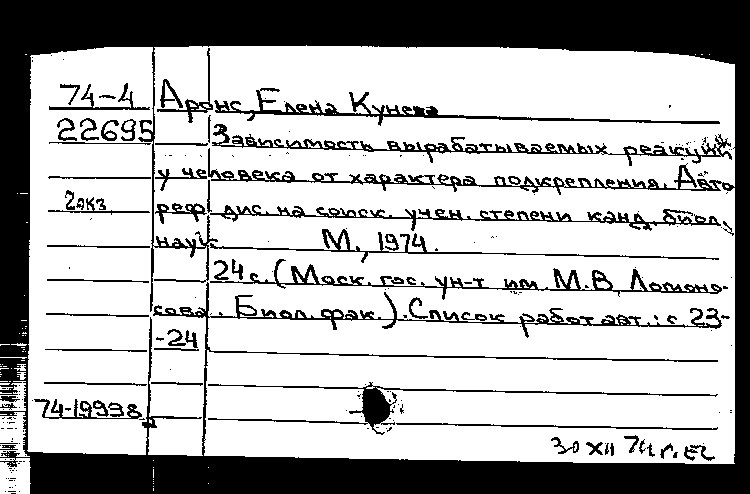 74-4 Аронс, Елена Кунева
22695 Зависимость вырабатываемых реакций
у человека от характера подкрепления. Авто
2 экз. реф. дис. на соиск. учен. степени канд. биол.
наук. М., 1974.
24 с. (Моск. гос. ун-т им. М.В. Ломоно-
сова. Биол. фак.). Список работ авт.: с 23-
-24
74-19998
30 XII 74 г.